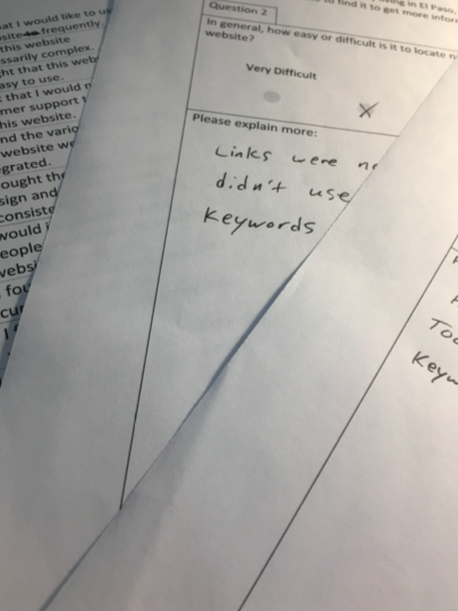 at I would like to us
frequently
this website
ssarily complex.
ht that this web
asy to use.
that I would n
mer support
his website.
nd the vario
website we
grated.
ought the
sign and
consiste
would
eople
websi
fou
cur
I
in El Paso,
to find it to get more infor
Question 2
In general, how easy or difficult is it to locate n
website?
Very Difficult
Please explain more:
Links were
didn't use
Keywords
Too
Keyw